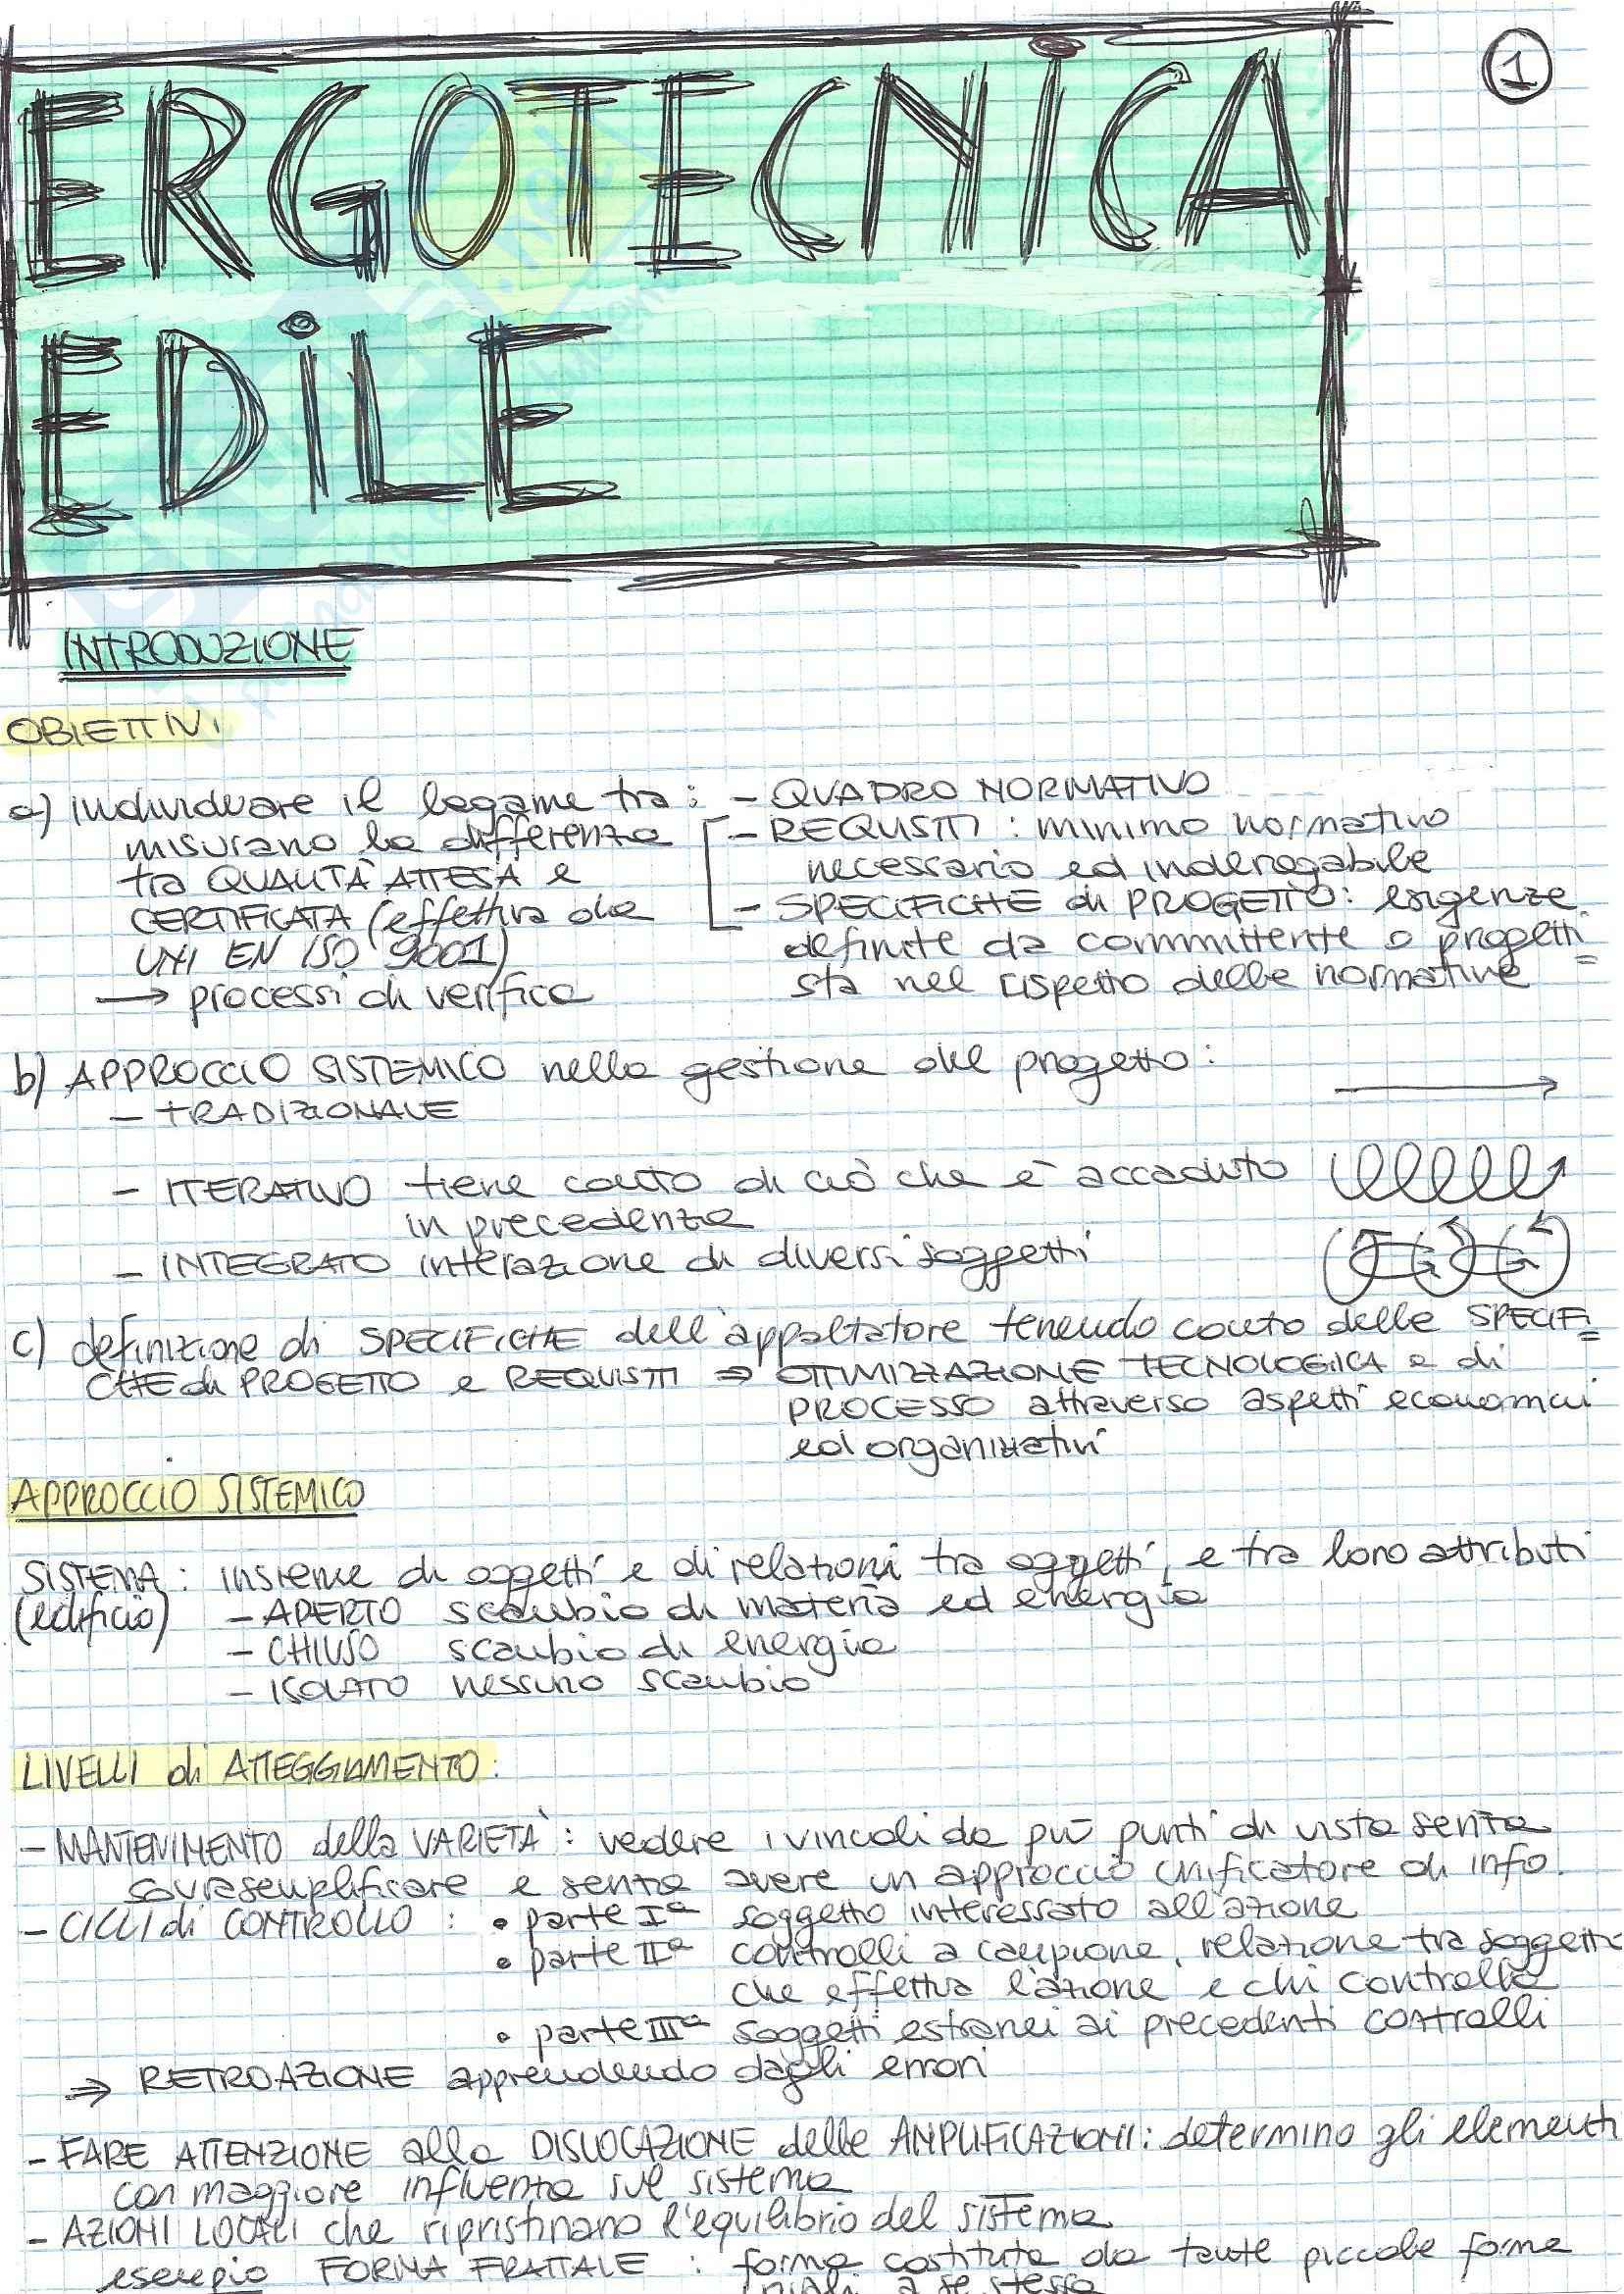 1
ERGOTECNICA
EDILE
INTRODUZIONE
OBIETTIVI
a) individuare il legame tra : – QUADRO NORMATIVO
misurano la differenza – REQUISITI : minimo normativo
tra QUALITÀ ATTESA e necessario ed inderogabile
CERTIFICATA (effettiva da – SPECIFICHE di PROGETTO: esigenze
UNI EN ISO 9001) definite da committente o progetti=
→ processi di verifica sta nel rispetto delle normative
b) APPROCCIO SISTEMICO nella gestione del progetto:
– TRADIZIONALE
– ITERATIVO tiene conto di ciò che è accaduto
in precedenza
– INTEGRATO interazione di diversi soggetti
c) definizione di SPECIFICHE dell'appaltatore tenendo conto delle SPECIFI=
CHE di PROGETTO e REQUISITI ⇒ OTTIMIZZAZIONE TECNOLOGICA e di
PROCESSO attraverso aspetti economici
ed organizzativi
APPROCCIO SISTEMICO
SISTEMA : insieme di oggetti e di relazioni tra oggetti, e tra loro attributi
(edificio) – APERTO scambio di materia ed energia
– CHIUSO scambio di energia
– ISOLATO nessuno scambio
LIVELLI di ATTEGGIAMENTO :
– MANTENIMENTO della VARIETÀ : vedere i vincoli da più punti di vista senza
sovrasemplificare e senza avere un approccio unificatore di info.
– CICLI di CONTROLLO : • parte Iª soggetto interessato all'azione
• parte IIª controlli a campione, relazione tra soggetto
che effettua l'azione e chi controlla
• parte IIIª soggetti estranei ai precedenti controlli
⇒ RETROAZIONE apprendendo dagli errori
– FARE ATTENZIONE alla DISLOCAZIONE delle AMPLIFICAZIONI : determino gli elementi
con maggiore influenza sul sistema
– AZIONI LOCALI che ripristinano l'equilibrio del sistema
esempio FORMA FRATTALE : forma costituita da tante piccole forme
a se stessa